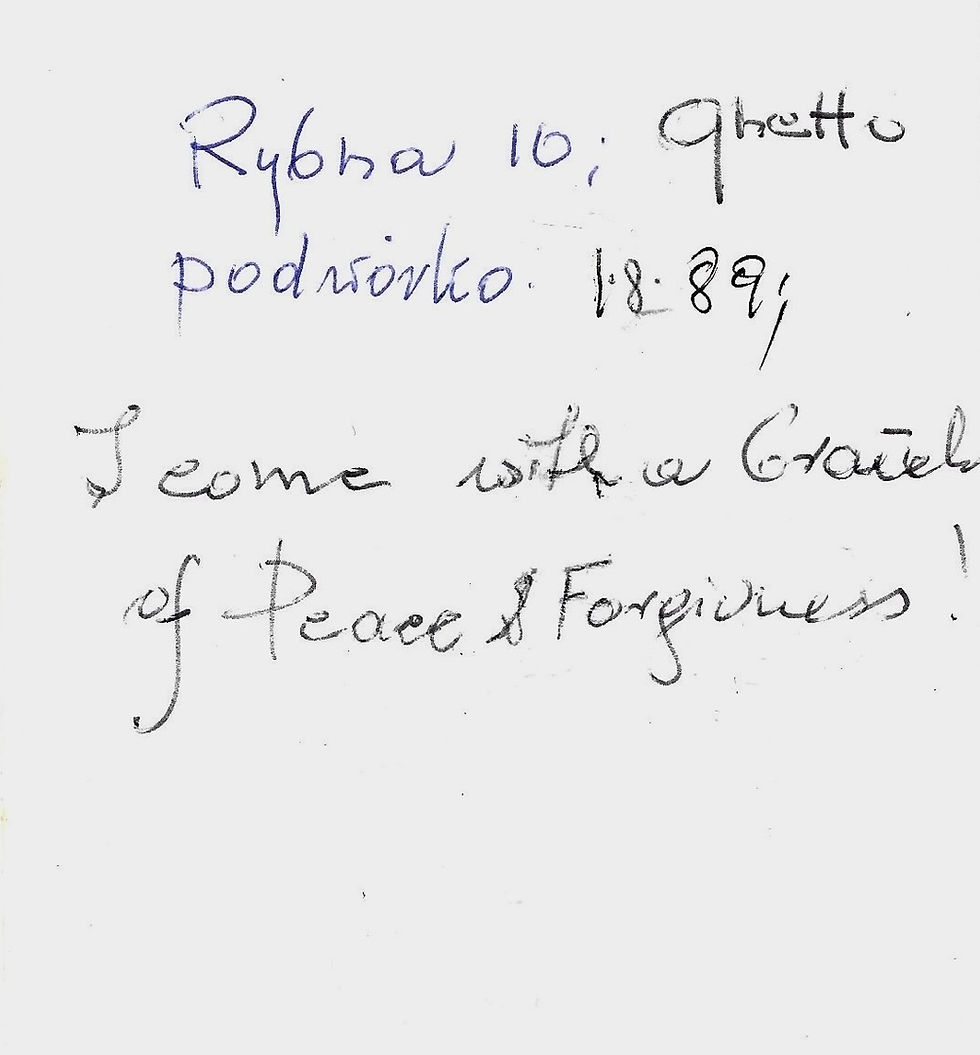 Rybna 10; Ghetto
podwórko. 1.8.89;
I come with a
of Peace & Forgivness!